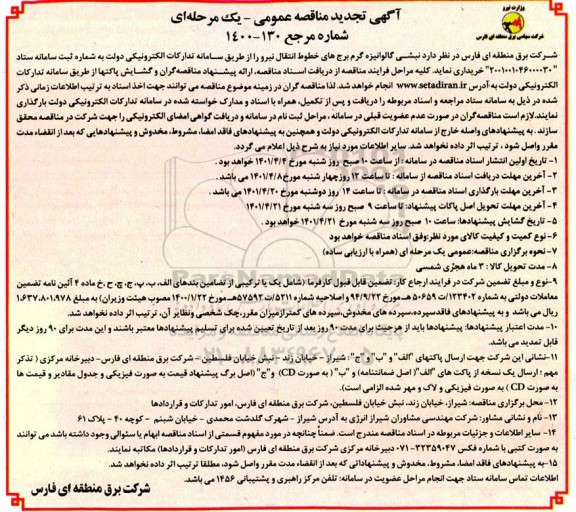 وزارت نیرو
شرکت سهامی برق منطقه ای فارس
آگهی تجدید مناقصه عمومی - یک مرحله‌ای
شماره مرجع ۱۳۰-۱۴۰۰
شرکت برق منطقه ای فارس در نظر دارد نبشی گالوانیزه گرم برج های خطوط انتقال نیرو را از طریق سامانه تدارکات الکترونیکی دولت به شماره ثبت سامانه ستاد
خریداری نماید. کلیه مراحل فرایند مناقصه از دریافت اسناد مناقصه، ارائه پیشنهاد مناقصه‌گران و گشایش پاکتها از طریق سامانه تدارکات
الکترونیکی دولت به آدرس www.setadiran.ir انجام خواهد شد. لذا مناقصه گران در زمینه موضوع مناقصه می توانند جهت اخذ اسناد به ترتیب اطلاعات زمانی ذکر
شده در ذیل به سامانه ستاد مراجعه و اسناد مربوطه را دریافت و پس از تکمیل، همراه با اسناد و مدارک خواسته شده در سامانه تدارکات الکترونیکی دولت بارگذاری
نمایند. لازم است مناقصه‌گران در صورت عدم عضویت قبلی در سامانه، مراحل ثبت نام در سامانه و دریافت گواهی امضای الکترونیکی را جهت شرکت در مناقصه محقق
سازند. به پیشنهادهای واصله خارج از سامانه تدارکات الکترونیکی دولت و همچنین به پیشنهادهای فاقد امضا، مشروط، مخدوش و پیشنهادهایی که بعد از انقضاء مدت
مقرر واصل شود، ترتیب اثر داده نخواهد شد. سایر اطلاعات مورد نیاز به شرح ذیل اعلام می گردد.
۱- تاریخ اولین انتشار اسناد مناقصه در سامانه: از ساعت ۱۰ صبح روز شنبه مورخ ۱۴۰۱/۴/۴ خواهد بود.
۲- آخرین مهلت دریافت اسناد مناقصه از سامانه: تا ساعت ۱۲ روز چهار شنبه مورخ ۱۴۰۱/۴/۸ می باشد.
۳- آخرین مهلت بارگذاری اسناد مناقصه در سامانه: تا ساعت ۱۴ روز دوشنبه مورخ ۱۴۰۱/۴/۲۰ می باشد.
۴- آخرین مهلت تحویل اصل پاکات پیشنهاد: تا ساعت ۹ صبح روز سه شنبه مورخ ۱۴۰۱/۴/۲۱
۵- تاریخ گشایش پیشنهادها: ساعت ۱۰ صبح روز سه شنبه مورخ ۱۴۰۱/۴/۲۱ خواهد بود.
۶- نوع کمیت و کیفیت کالای مورد نظر: وفق اسناد مناقصه خواهد بود
۷- نحوه برگزاری مناقصه: عمومی یک مرحله ای (همراه با ارزیابی ساده)
۸- مدت تحویل کالا: ۳ ماه هجری شمسی
۹- نوع و مبلغ تضمین شرکت در فرایند ارجاع کار: تضمین قابل قبول کارفرما (شامل یک یا ترکیبی از تضامین بندهای الف، ب، پ، ج، چ، ح، خ ماده ۴ آئین نامه تضمین
معاملات دولتی به شماره ۱۲۳۴۰۲/ت ۵۰۶۵۹ هـ مورخ ۹۴/۹/۲۲ و اصلاحیه شماره ۵۲۱۱/ت ۵۷۵۹۲هـ مورخ ۱۴۰۰/۱/۲۲ مصوب هیئت وزیران) به مبلغ ۱.۶۳۷.۸۰۱.۹۷۸
ریال می باشد و به پیشنهادهای فاقد سپرده، سپرده های مخدوش، سپرده های کمتر از میزان مقرر، چک شخصی ونظایر آن، ترتیب اثر داده نخواهد شد.
۱۰- مدت اعتبار پیشنهادها: پیشنهادها باید از هر حیث برای مدت ۹۰ روز بعد از تاریخ تعیین شده برای تسلیم پیشنهادها معتبر باشند و این مدت برای ۹۰ روز دیگر
قابل تمدید می باشد.
۱۱- نشانی این شرکت جهت ارسال پاکتهای "الف" و "ب" و "ج": شیراز - خیابان زند - نبش خیابان فلسطین - شرکت برق منطقه ای فارس - دبیرخانه مرکزی (تذکر
مهم: ارسال یک نسخه از پاکت های "الف" (اصل ضمانتنامه) و "ب" (به صورت CD) و "ج" (اصل برگ پیشنهاد قیمت به صورت فیزیکی و جدول مقادیر و قیمت ها
به صورت CD) به صورت فیزیکی و لاک و مهر شده الزامی است).
۱۲- محل برگزاری مناقصه: شیراز، خیابان زند، نبش خیابان فلسطین، شرکت برق منطقه ای فارس، امور تدارکات و قراردادها
۱۳- نام و نشانی مشاور: شرکت مهندسی مشاوران شیراز انرژی به آدرس شیراز - شهرک گلدشت محمدی - خیابان شبنم - کوچه ۴۰ - پلاک ۶۱
۱۴- سایر اطلاعات و جزئیات مربوطه در اسناد مناقصه مندرج است. ضمنا چنانچه در مورد مفهوم قسمتی از اسناد مناقصه ابهام یا سئوالی وجود داشته باشد می توانند
به صورت کتبی با شماره فکس ۳۲۳۵۹۰۴۷-۰۷۱ دبیرخانه مرکزی شرکت برق منطقه ای فارس (امور تدارکات و قراردادها) مکاتبه نمایند.
۱۵- به پیشنهادهای فاقد امضا، مشروط، مخدوش و پیشنهاداتی که بعد از انقضاء مدت مقرر واصل شود، مطلقا ترتیب اثر داده نخواهد شد.
اطلاعات تماس سامانه ستاد جهت انجام مراحل عضویت در سامانه: تلفن مرکز راهبری و پشتیبانی ۱۴۵۶ می باشد.
شرکت برق منطقه ای فارس
ParsNamadData